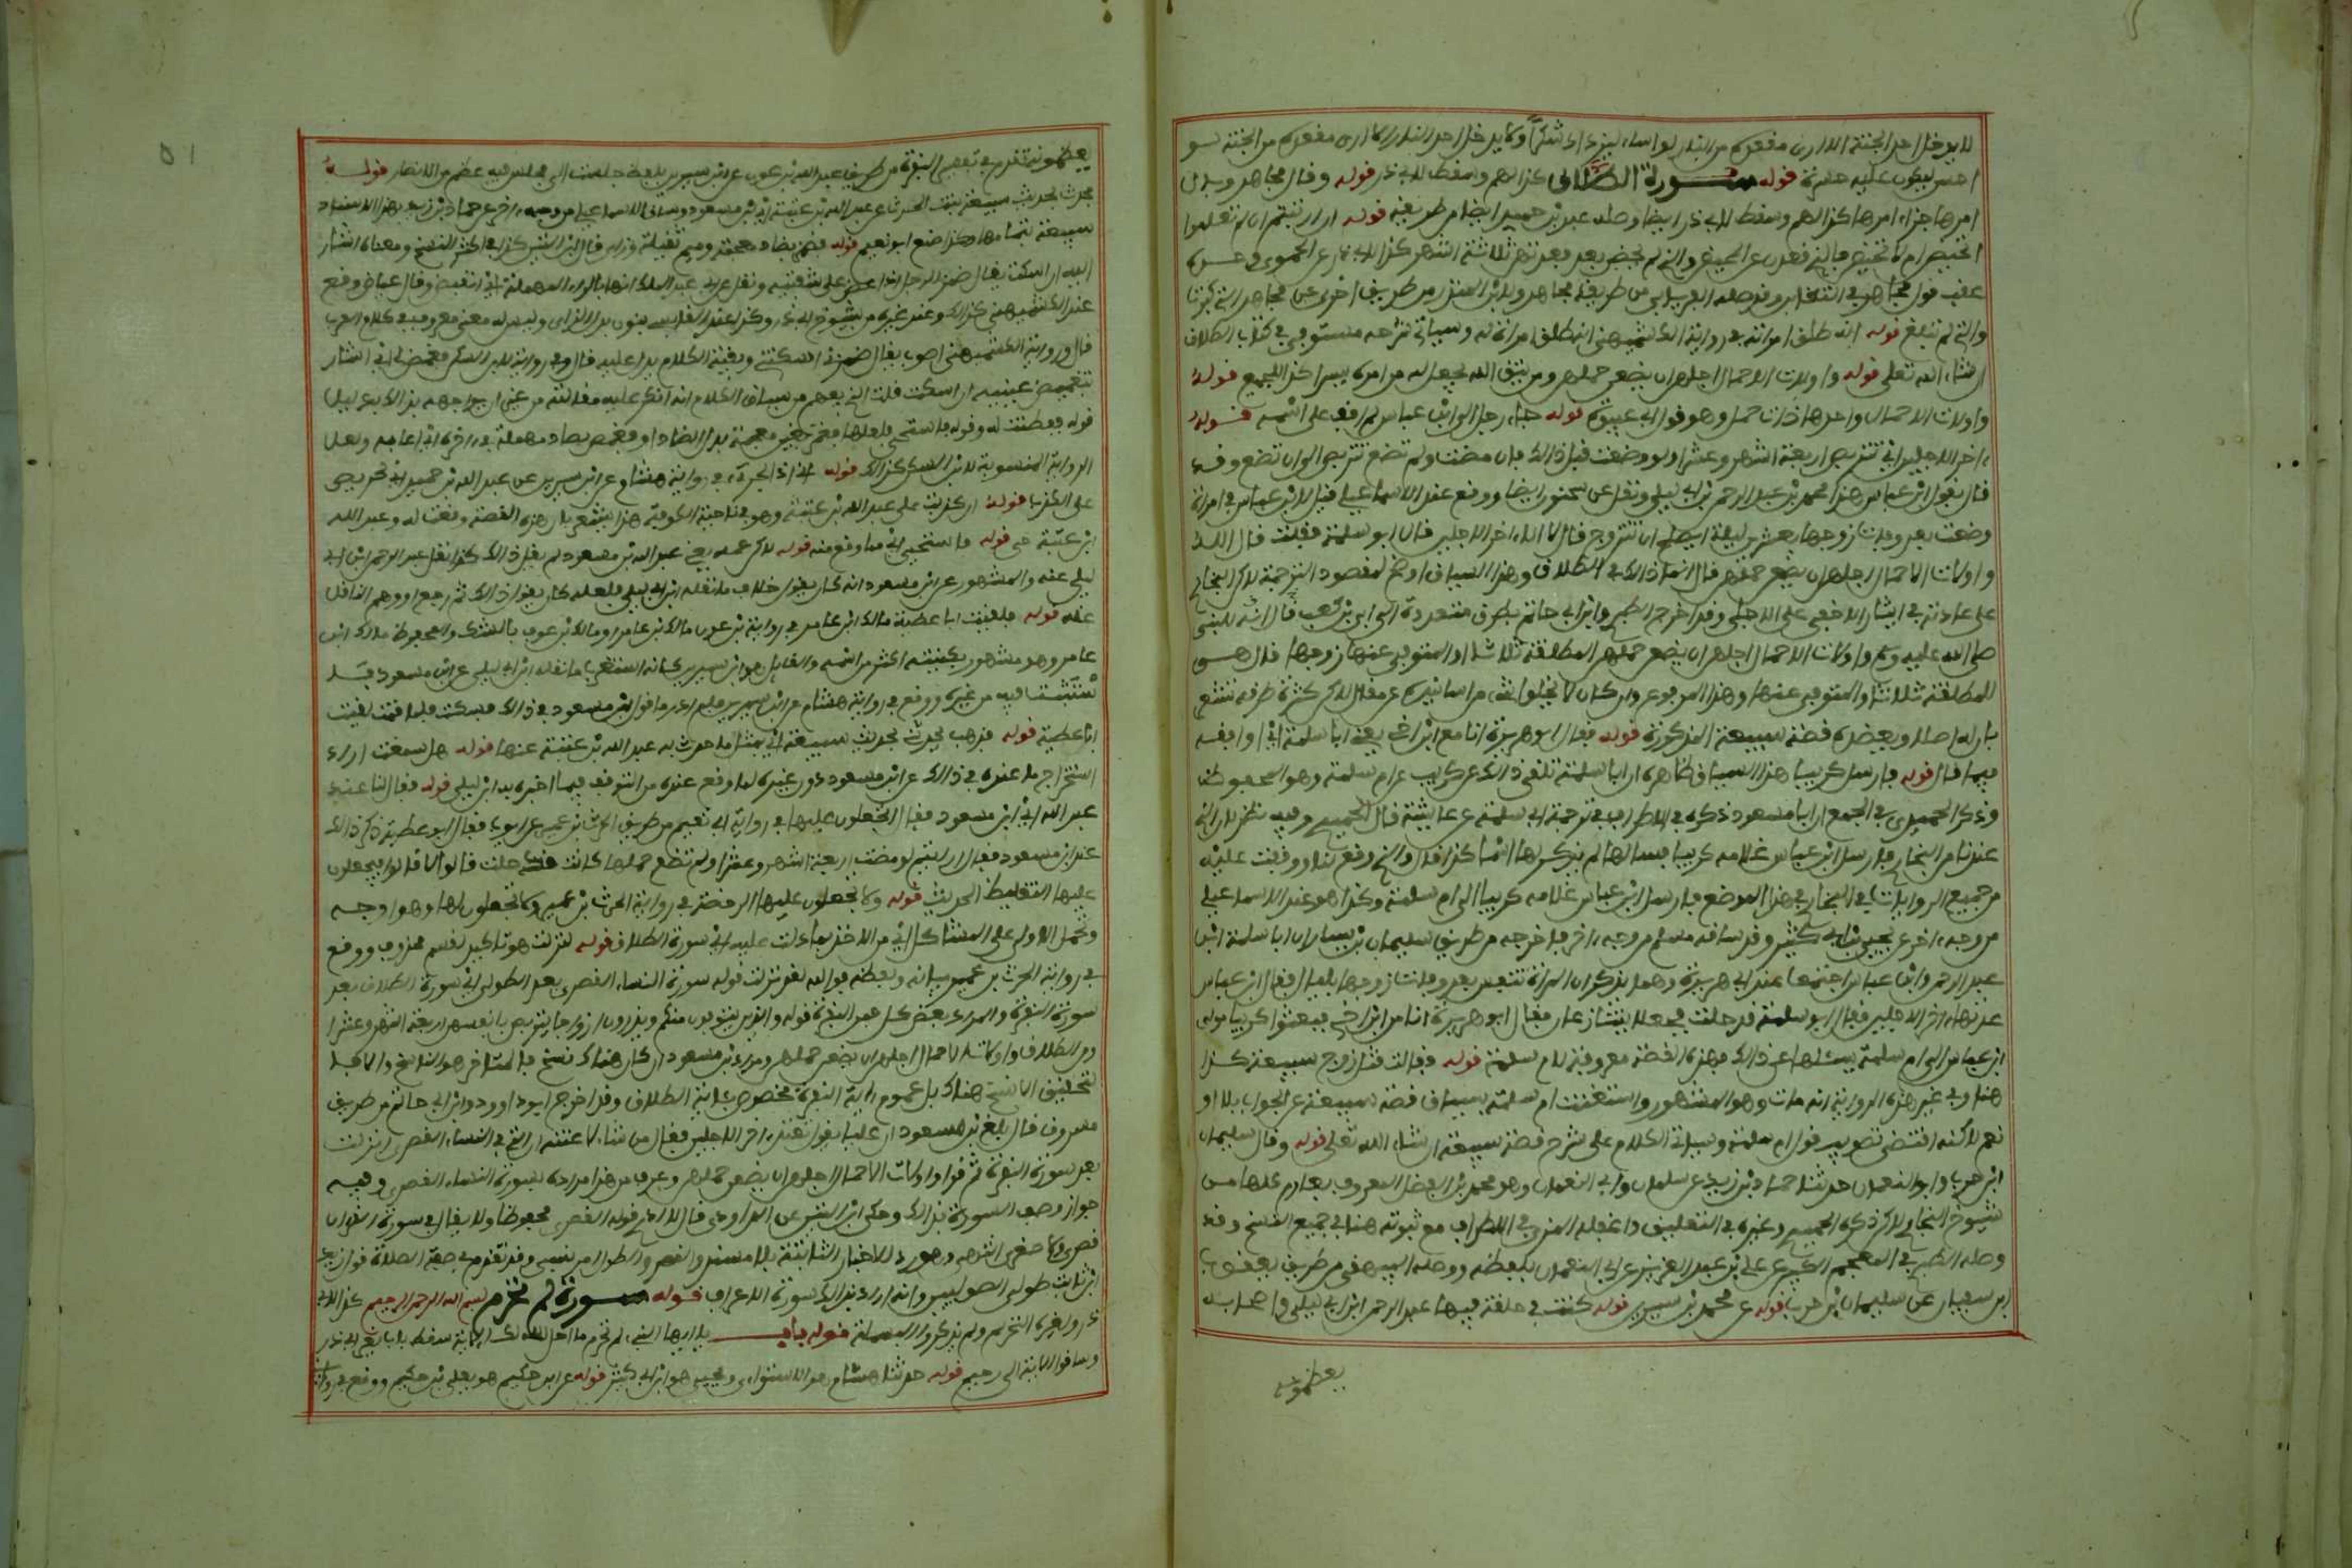 لا يدخل احد الجنة الا ارى مقعده من النار لو اساء ليزداد شكرا ولا يدخل احد النار الا ارى مقعده من الجنة لو
احسن ليكون عليه حسرة قوله سورة الطلاق كذا لهم وسقط لابي ذر قوله وقال مجاهد وبال
امرها جزاء امرها كذا لهم وسقط لابي ذر ايضا وصله عبد بن حميد ايضا من طريقه قوله ان ارتبتم ان لم تعلموا
اتحيض ام لا تحيض فاللائي قعدن عن المحيض والائي لم يحضن بعد فعدتهن ثلاثة اشهر كذا لابي ذر عن الحموي وحده
عقب قول مجاهد في التغابن وقد وصله الفريابي من طريق مجاهد ولابن المنذر من طريق اخرى عن مجاهد التي كبرت
والتي لم تبلغ قوله انه طلق امراته في رواية الكشميهني انه طلق امراة له وسياتي شرحه مستوفى في كتاب الطلاق
ان شاء الله تعلى قوله واولات الاحمال اجلهن ان يضعن حملهن ومن يتق الله يجعل له من امره يسرا كذا للجميع قوله
واولات الاحمال واحدها ذات حمل وهو قول ابي عبيدة قوله جاء رجل الى ابن عباس لم اقف على اسمه قوله
ءاخر الاجلين اي تتربص اربعة اشهر وعشرا ولو وضعت قبل ذلك فان مضت ولم تضع تتربص الى ان تضع وقد
قال بقول ابن عباس هذا محمد بن عبد الرحمن بن ابي ليلى ونقل عن سحنون ايضا ووقع عند الاسماعيلي قيل لابن عباس في امراة
وضعت بعد وفاة زوجها بعشرين ليلة ايصلح ان تتزوج قال لا الى ءاخر الاجلين قال ابو سلمة فقلت قال الله
واولات الاحمال اجلهن ان يضعن حملهن قال انما ذاك في الطلاق وهذا السياق اوضح لمقصود الترجمة لاكن البخاري
على عادته في ايثار الاخفى على الاجلى وقد اخرج الطبري وابن ابي حاتم بطرق متعددة الى ابي بن كعب انه قال للنبي
صلى الله عليه وسلم واولات الاحمال اجلهن ان يضعن حملهن المطلقة ثلاثا او المتوفى عنها زوجها قال هي
للمطلقة ثلاثا والمتوفى عنها وهذا المرفوع وان كان لا يخلوا شيء من اسانيده عن مقال لاكن كثرة طرقه تشعر
بان له اصلا ويعضده قصة سبيعة المذكورة قوله فقال ابو هريرة انا مع ابن اخي يعني ابا سلمة اي اوافقه
فيما قال قوله فارسل كريبا هذا السياق ظاهره ان ابا سلمة تلقى ذلك عن كريب عن ام سلمة وهو المحفوظ
وذكر الحميدي في الجمع ان ابا مسعود ذكره في الاطراف في ترجمة ابي سلمة عن عائشة قال الحميدي وفيه نظر لان الذي
عندنا من البخاري فارسل ابن عباس غلامه كريبا فسالها لم يذكر لها اسما كذا قال والذي وقع لنا ووقفت عليه
من جميع الروايات في البخاري في هذا الموضع فارسل ابن عباس غلامه كريبا الى ام سلمة وكذا هو عند الاسماعيلي
من وجه ءاخر عن يحيى بن ابي كثير وقد ساقه مسلم من وجه ءاخر فاخرجه من طريق سليمان بن يسار ان ابا سلمة ابن
عبد الرحمن وابن عباس اجتمعا عند ابي هريرة وهما يذكران المراة تنفس بعد وفاة زوجها بليال فقال ابن عباس
عدتها ءاخر الاجلين فقال ابو سلمة قد حلت فجعلا يتنازعان فقال ابو هريرة انا مع ابن اخي فبعثوا كريبا مولى
ابن عباس الى ام سلمة يسئلها عن ذلك فهذه القصة معروفة لام سلمة قوله فقالت قتل زوج سبيعة كذا
هنا وفي غير هذه الرواية انه مات وهو المشهور واستغنت ام سلمة بسياق قصة سبيعة عن الجواب بلا او
نعم لاكنه اقتضى تصويب قول ابي سلمة وسياتي الكلام على شرح قصة سبيعة ان شاء الله تعلى قوله وقال سليمان
ابن حرب وابو النعمان حدثنا حماد بن زيد عن سليمان وابي النعمان وهو محمد بن الفضل المعروف بعارم كلاهما من
شيوخ البخاري لاكن ذكره الحميدي وغيره في التعليق واغفله المزي في الاطراف مع ثبوته هنا في جميع النسخ وقد
وصله الطبراني في المعجم الكبير عن علي بن عبد العزيز عن ابي النعمان بلفظه ووصله البيهقي من طريق يعقوب
ابن سفيان عن سليمان بن حرب قوله عن محمد بن سيرين قوله كنت في حلقة فيها عبد الرحمن ابن ابي ليلى واصحابه
يعظمونه
يعظمونه تقدم في تفسير البقرة من طريق عبد الله بن عون عن ابن سيرين بلفظ جلست الى مجلس فيه عظم من الانصار قوله
فحدث بحديث سبيعة بنت الحرث عن عبد الله بن عتبة اي ابن مسعود وساق الاسماعيلي من وجه ءاخر عن حماد بن زيد بهذا الاسناد
سبيعة بتمامها وكذا صنع ابو نعيم قوله فضمز بضاد معجمة وميم ثقيلة وزاي قال ابن التين كذا في اكثر النسخ ومعناه اشار
اليه ان اسكت يقال ضمز الرجل اذا عض على شفتيه ونقل عن ابي عبد الملك انها بالراء المهملة اي انقبض وقال عياض وقع
عند الكشميهني كذلك وعند غيره من شيوخ ابي ذر وكذا عند القابسي بنون بدل الزاي وليس له معنى معروف في كلام العرب
قال ورواية الكشميهني اصوب يقال ضمزني اسكتني وبقية الكلام يدل عليه قال وفي رواية لابن السكن فغمض لي اي اشار
بتغميض عينيه ان اسكت قلت الذي يفهم من سياق الكلام انه انكر عليه مقالته من غير ان يواجهه بذلك بدليل
قوله ففطنت له وقوله فاستحيى فلعلها فغمز بغين معجمة بدل الضاد او فغمص بصاد مهملة في ءاخره اي اعابه ولعل
الرواية المنسوبة لابن السكن كذلك قوله اني اذا لجريء في رواية هشام عن ابن سيرين عن عبد الله بن حميد اني لحريص
على الكذب قوله ان كذبت على عبد الله بن عتبة وهو في ناحية الكوفة هذا يشعر بان هذه القصة وقعت له وعبد الله
ابن عتبة حي قوله فاستحيى اي مما وقع منه قوله لاكن عمه يعني عبد الله بن مسعود لم يقل ذلك كذا نقل عبد الرحمن ابن ابي
ليلى عنه والمشهور عن ابن مسعود انه كان يقول خلاف ما نقله ابن ابي ليلى فلعله كان يقول ذلك ثم رجع او وهم الناقل
عنه قوله فلقيت ابا عطية مالك ابن عامر في رواية بن عون مالك بن عامر او مالك بن عوف بالشك والمحفوظ مالك ابن
عامر وهو مشهور بكنيته اكثر من اسمه والقائل هو ابن سيرين كانه استغرب ما نقله ابن ابي ليلى عن ابن مسعود فـ
ستثبت فيه من غيره ووقع في رواية هشام عن ابن سيرين فلم ادر ما قول ابن مسعود في ذلك فسكت فلما قمت لقيت
ابا عطية قوله فذهب يحدثني بحديث سبيعة اي بمثل ما حدث به عبد الله بن عتبة عنها قوله هل سمعت اراد
استخراج ما عنده في ذلك عن ابن مسعود دون غيره لما وقع عنده من التوقف فيما اخبره به ابن ليلى قوله فقال كنا عند
عبد الله اي ابن مسعود فقال اتجعلون عليها في رواية ابي نعيم من طريق الحرث بن عمير عن ايوب فقال ابو عطية ذكر ذلك
عند ابن مسعود فقال ارايتم لو مضت اربعة اشهر وعشرا ولم تضع حملها كانت قد حلت قالوا لا قال افتجعلون
عليها التغليظ الحديث قوله ولا تجعلون عليها الرخصة في رواية الحرث بن عمير ولا تجعلون لها وهو اوجه
وتحمل الاولى على المشاكلة اي من الاخذ بما دلت عليه اي سورة الطلاق قوله لنزلت هو تاكيد لقسم محذوف ووقع
في رواية الحرث بن عمير بيانه ولفظه فوالله لقد نزلت قوله سورة النساء القصرى بعد الطولى اي سورة الطلاق بعد
سورة البقرة والمراد بعض كل فمن البقرة قوله والذين يتوفون منكم ويذرون ازواجا يتربصن بانفسهن اربعة اشهر وعشرا
ومن الطلاق واولات الاحمال اجلهن ان يضعن حملهن ومراد ابن مسعود ان كان هناك نسخ فالمتاخر هو الناسخ والا فـ
لتحقيق الا نسخ هناك بل عموم ءاية البقرة مخصوص بئاية الطلاق وقد اخرج ابو داوود وابن ابي حاتم من طريق
مسروق قال بلغ ابن مسعود ان عليا يقول تعتد ءاخر الاجلين فقال من شاء لاعنته ان التي في النساء القصرى انزلت
بعد سورة البقرة ثم قرا واولات الاحمال اجلهن ان يضعن حملهن وعرف من هذا مراده بسورة النساء القصرى وفيه
جواز وصف السورة بذلك وحكى ابن التين عن الداودي قال لا ارى قوله القصرى محفوظا ولا يقال في سورة القرءان
قصرى ولا صغرى انتهى وهو رد للاخبار الثابتة بلا مستند والقصر والطول امر نسبي وقد تقدم في صفة الصلاة قول زيد
ابن ثابت طولى الطوليين وانه اراد بذلك سورة الاعراف قوله سورة لم تحرم بسم الله الرحمن الرحيم كذا لابي
ذر ولغيره التحريم ولم يذكروا البسملة قوله باب يا ايها النبيء لم تحرم ما احل الله لك الاية سقط باب لغير ابي ذر
وساقوا الاية الى رحيم قوله حدثنا هشام هو الدستوائي ويحيى هو ابن ابي كثير قوله عن ابن حكيم هو يعلى بن حكيم ووقع في رواية